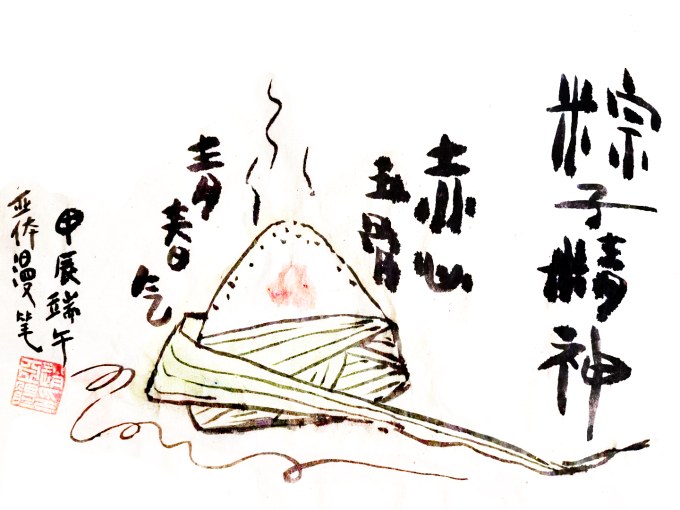 粽子精神
赤心
玉骨
青春气
甲辰端午
漫笔